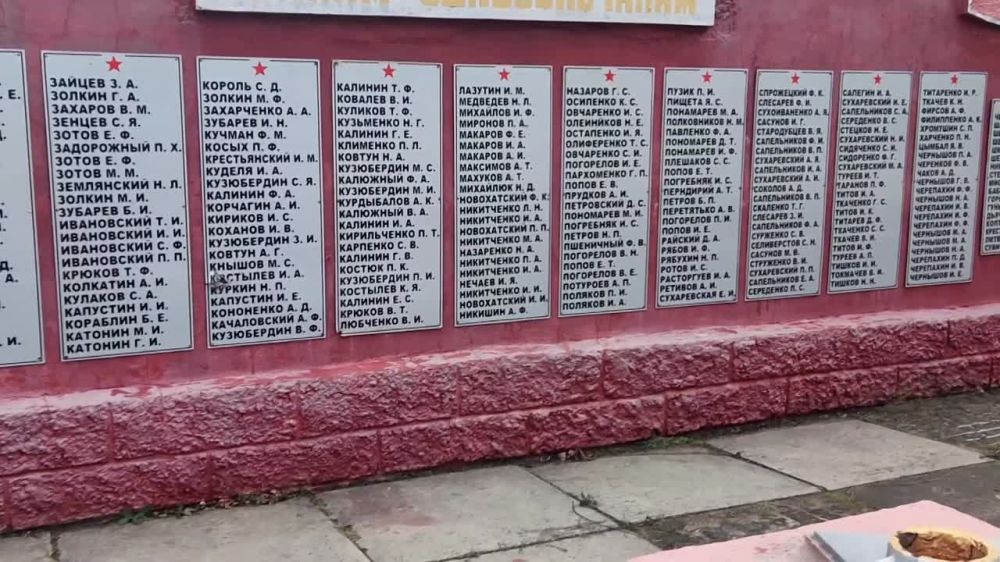 ЗАЙЦЕВ З. А.
ЗОЛКИН Г. А.
ЗАХАРОВ В. М.
ЗЕНЦЕВ С. Я.
ЗОТОВ Е. Ф.
ЗАДОРОЖНЫЙ П. Х.
ЗОТОВ Е. Ф.
ЗОТОВ М. М.
ЗЕМЛЯНСКИЙ Н. Л.
ЗОЛКИН М. И.
ЗУБАРЕВ Б. И.
ИВАНОВСКИЙ Т. И.
ИВАНОВСКИЙ И. И.
ИВАНОВСКИЙ С. Ф.
ИВАНОВСКИЙ П. П.
КРЮКОВ Т. Ф.
КОЛКАТИН А. И.
КУЛАКОВ С. А.
КАПУСТИН И. И.
КОРАБЛИН Б. Е.
КАТОНИН М. И.
КАТОНИН Г. И.
КОРОЛЬ С. Д.
ЗОЛКИН М. Ф.
ЗАХАРЧЕНКО А. А.
ЗУБАРЕВ И. Н.
КУЧМАН Ф. М.
КОСЫХ П. Ф.
КРЕСТЬЯНСКИЙ И. М.
КУДЕЛЯ И. А.
КУЗЮБЕРДИН С. Я.
КАЛИНИН Ф. А.
КОРЧАГИН А. И.
КИРИКОВ И. С.
КОХАНОВ И. В.
КУЗЮБЕРДИН З. И.
КОВТУН А. Г.
КНЫШОВ М. С.
КОСТЫЛЕВ И. А.
КУРКИН Н. П.
КАПУСТИН И. Е.
КОНОНЕНКО А. Д.
КАЧАЛОВСКИЙ А. Ф.
КУЗЮБЕРДИН В. Ф.
КАЛИНИН Т. Ф.
КОВАЛЕВ В. И.
КУЛИКОВ Т. Ф.
КУЗЬМЕНКО Н. Г.
КАЛИНИН Г. Е.
КЛИМЕНКО П. Л.
КОВТУН Н. А.
КУЗЮБЕРДИН М. С.
КАЛЮЖНЫЙ Ф. А.
КУЗЮБЕРДИН М. И.
КУРДЫБАЛОВ А. К.
КАЛЮЖНЫЙ В. А.
КАЛИНИН И. А.
КИРИЛЬЧЕНКО П. Т.
КАРПЕНКО С. В.
КАЛИНИН Г. В.
КОСТЮК П. К.
КУЗЮБЕРДИН П. И.
КОСТЫЛЕВ К. Я.
КАЛИНИН Е. С.
КРЮКОВ В. Т.
ЛЮБЧЕНКО В. И.
ЛАЗУТИН И. М.
МЕДВЕДЕВ Н. Л.
МИХАЙЛОВ И. Ф.
МИРОНОВ П. А.
МАКАРОВ Ф. Е.
МАКАРОВ И. А.
МАКАРОВ А. И.
МАКСИМОВ А. Т.
МАХУКОВ А. Т.
МИХАЙЛЮК Н. Д.
НОВОХАТСКИЙ Ф. К.
НИКИТЧЕНКО Л. Н.
НИКИТЧЕНКО И. А.
НОВОХАТСКИЙ П. П.
НИКИТЧЕНКО М. А.
НАЗАРЕНКО Н. А.
НИКИТЧЕНКО П. А.
НИКИТЧЕНКО И. А.
НЕЧАЕВ И. Я.
НИКИТЧЕНКО И. И.
НОВОХАТСКИЙ И. И.
НИКИШИН А. Ф.
НАЗАРОВ Г. С.
ОСИПЕНКО К. С.
ОВЧАРЕНКО И. С.
ОЛЕЙНИКОВ Н. Е.
ОСТАПЕНКО И. Я.
ОЛИФЕРЕНКО Т. С.
ОВЧАРЕНКО С. И.
ПОГОРЕЛОВ И. Е.
ПАРХОМЕНКО Г. П.
ПОПОВ Е. В.
ПРУДКОВ А. И.
ПЕТРОВСКИЙ Д. С.
ПОНОМАРЕВ М. И.
ПОГРЕБНЯК И. С.
ПЕТРОВ Н. П.
ПШЕНИЧНЫЙ Ф. В.
ПОГОРЕЛОВ В. Н.
ПОПОВ Е. Т.
ПОГОРЕЛОВ В. Е.
ПОТУРОЕВ А. П.
ПОЛЯКОВ П. И.
ПОЛЯКОВ И. А.
ПУЗИК П. И.
ПИЩЕТА Я. С.
ПОНАМАРЕВ М. А.
ПОЛКОВНИКОВ Н. М.
ПАВЛЕНКО Ф. А.
ПОНОМАРЕВ Д. Т.
ПОНАМАРЕВ И. Ф.
ПЛЕШАКОВ С. С.
ПОПОВ Е. Т.
ПОГРЕБНЯК И. С.
ПЕРИДИРИИ А. Т.
ПЕТРОВ Б. П.
ПЕРЕТЯТЬКО А. В.
ПОГОРЕЛОВ П. И.
ПОПОВ И. Е.
РАЙСКИЙ Д. А.
РЯБОВ И. Ф.
РЯБУХИН Н. П.
РОТОВ И. С.
РАСТОРГУЕВ И. А.
РЕТИВОВ А. И.
СУХАРЕВСКАЯ Е. И.
СПРОЖЕЦКИЙ Ф. К.
СЛЕСАРЕВ Ф. И.
СУХОИВАНЕНКО А. А.
САСУНОВ И. Г.
СТАРОДУБЦЕВ В. Я.
САПЕЛЬНИКОВ Ф. А.
САПЕЛЬНИКОВ В. П.
СУХАРЕВСКИЙ А. Я.
САПЕЛЬНИКОВ К. А.
СУХАРЕВСКИЙ А. И.
СОКОЛОВ А. Д.
СКАЛЕНКО Т. Г.
СЛЕСАРЕВ З. И.
САПЕЛЬНИКОВ Ф. А.
СУРЖЕНКО С. В.
СЕЛИВЕРСТОВ С. Н.
САСУНОВ М. Г.
СТРУЖЕНКО В. И.
СУХАРЕВСКИЙ П. П.
САПЕЛЬНИКОВ Е. А.
СЕРЕДЕНКО П. С.
САПЕГИН И. А.
СУХАРЕВСКИЙ И. Е.
САПЕЛЬНИКОВ С. А.
СЕРЕДЕНКО В. С.
СТЕЦКОВ Н. Е.
СУХАРЕВСКИЙ И. И.
СИДЯЧЕНКО С. И.
СИДОРЕНКО Ф. Г.
СУХАРЕВСКИЙ М. А.
ТУРЕЕВ И. Т.
ТАРАНОВ П. Ф.
ТИТОВ И. А.
ТКАЧЕНКО Г. С.
ТИТОВ И. К.
ТИТАРЕВ Д. Ф.
ТКАЧЕНКО С. С.
ТКАЧЕВ И. И.
ТИТОВ И. Ф.
ТУРЕЕВ А. П.
ТИШКОВ И. И.
ТОКМАЧЕВ В. И.
ТИШКОВ Н. Н.
ТИТАРЕНКО И. Р.
ТКАЧЕВ К. Н.
ФИРСОВ А. Ф.
ФИЛИППЕНКО А. К.
ХРОМУШИН С. П.
ХАРЧЕНКО П. Н.
ЦЫМБАЛ Я. В.
ЧЕРНЫШОВ П. А.
ЧЕРЕНКОВ Ф. В.
ЧАКОВ А. Д.
ЧЕРНЫШОВ Г. В.
ЧЕРЕПАХИН Ф. Ф.
ЧЕРЕПАХИН И. Ф.
ЧЕРНЫШОВ И. А.
ЧЕРНЫШОВ М. А.
ЧЕРНЫШОВ Н. А.
ЧЕРЕПАХИН И. И.
ЧЕРЕПАХИН В. Е.